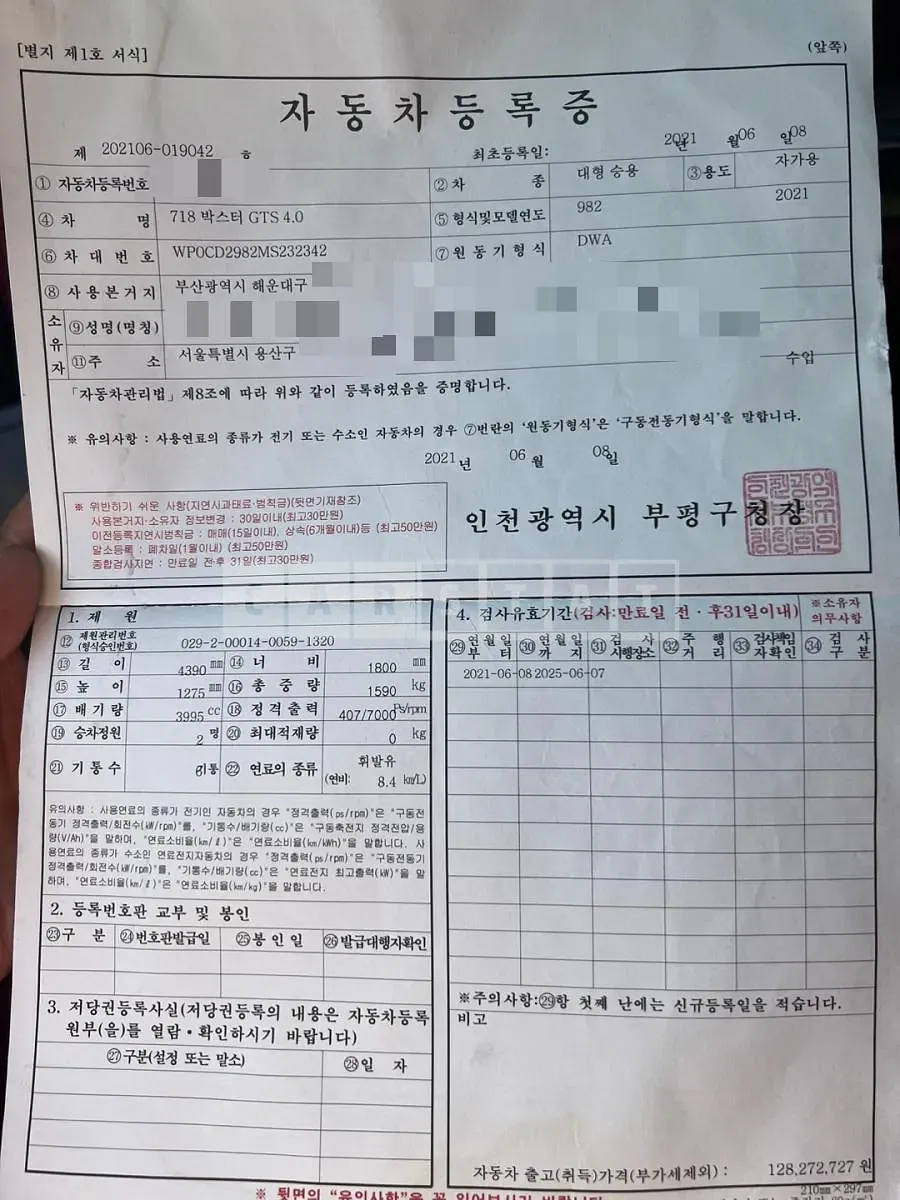 [별지 제1호 서식]
(앞쪽)
자동차등록증
제 202106-019042 호
최초등록일: 2021년 06월 08일
① 자동차등록번호
② 차 종 대형 승용 ③용도 자가용
④ 차 명 718 박스터 GTS 4.0 ⑤ 형식및모델연도 982 2021
⑥ 차 대 번 호 WP0CD2982MS232342 ⑦ 원 동 기 형 식 DWA
⑧ 사 용 본 거 지 부산광역시 해운대구
소유자 ⑨성명(명칭)
⑪주 소 서울특별시 용산구
수입
「자동차관리법」 제8조에 따라 위와 같이 등록하였음을 증명합니다.
※ 유의사항 : 사용연료의 종류가 전기 또는 수소인 자동차의 경우 ⑦번란의 '원동기형식'은 '구동전동기형식'을 말합니다.
2021년 06월 08일
※ 위반하기 쉬운 사항(지연시과태료·범칙금)(뒷면기재참조)
사용본거지·소유자 정보변경 : 30일이내(최고30만원)
이전등록지연시범칙금 : 매매(15일이내), 상속(6개월이내)등 (최고50만원)
말소등록 : 폐차일(1월이내) (최고50만원)
종합검사지연 : 만료일 전·후 31일(최고30만원)
인천광역시 부평구청장
CARSTAT
1. 제 원
⑫ 제원관리번호 (형식승인번호) 029-2-00014-0059-1320
⑬ 길 이 4390 mm ⑭ 너 비 1800 mm
⑮ 높 이 1275 mm ⑯ 총 중 량 1590 kg
⑰ 배 기 량 3995 cc ⑱ 정 격 출 력 407/7000 Ps/rpm
⑲ 승차정원 2 명 ⑳ 최대적재량 0 kg
㉑ 기 통 수 6기통 ㉒ 연료의 종류 휘발유
(연비: 8.4 km/L)
유의사항 : 사용연료의 종류가 전기인 자동차의 경우 "정격출력(ps/rpm)"은 "구동전
동기 정격출력/회전수(kW/rpm)"를, "기통수/배기량(cc)"은 "구동축전지 정격전압/용
량(V/Ah)"을 말하며, "연료소비율(km/ℓ)"은 "연료소비율(km/kWh)"을 말합니다. 사
용연료의 종류가 수소인 연료전지자동차의 경우 "정격출력(ps/rpm)"은 "구동전동기
정격출력/회전수(kW/rpm)"를, "기통수/배기량(cc)"은 "연료전지 최고출력(kW)"을 말
하며, "연료소비율(km/ℓ)"은 "연료소비율(km/kg)"을 말합니다.
2. 등록번호판 교부 및 봉인
㉓구 분 ㉔번호판발급일 ㉕봉 인 일 ㉖발급대행자확인
3. 저당권등록사실(저당권등록의 내용은 자동차등록
원부(을)를 열람·확인하시기 바랍니다)
㉗구분(설정 또는 말소) ㉘일 자
4. 검사유효기간(검사:만료일 전·후31일이내) ※소유자 의무사항
㉙연월일 부터 ㉚연월일 까지 ㉛검 사 시행장소 ㉜주 행 거 리 ㉝검사책임 자확인 ㉞검 사 구 분
2021-06-08 2025-06-07
※주의사항:㉙항 첫째 난에는 신규등록일을 적습니다.
비고
자동차 출고(취득)가격(부가세제외) : 128,272,727 원
210㎜×297㎜
※ 뒷면의 "유의사항"을 꼭 읽어보시기 바랍니다